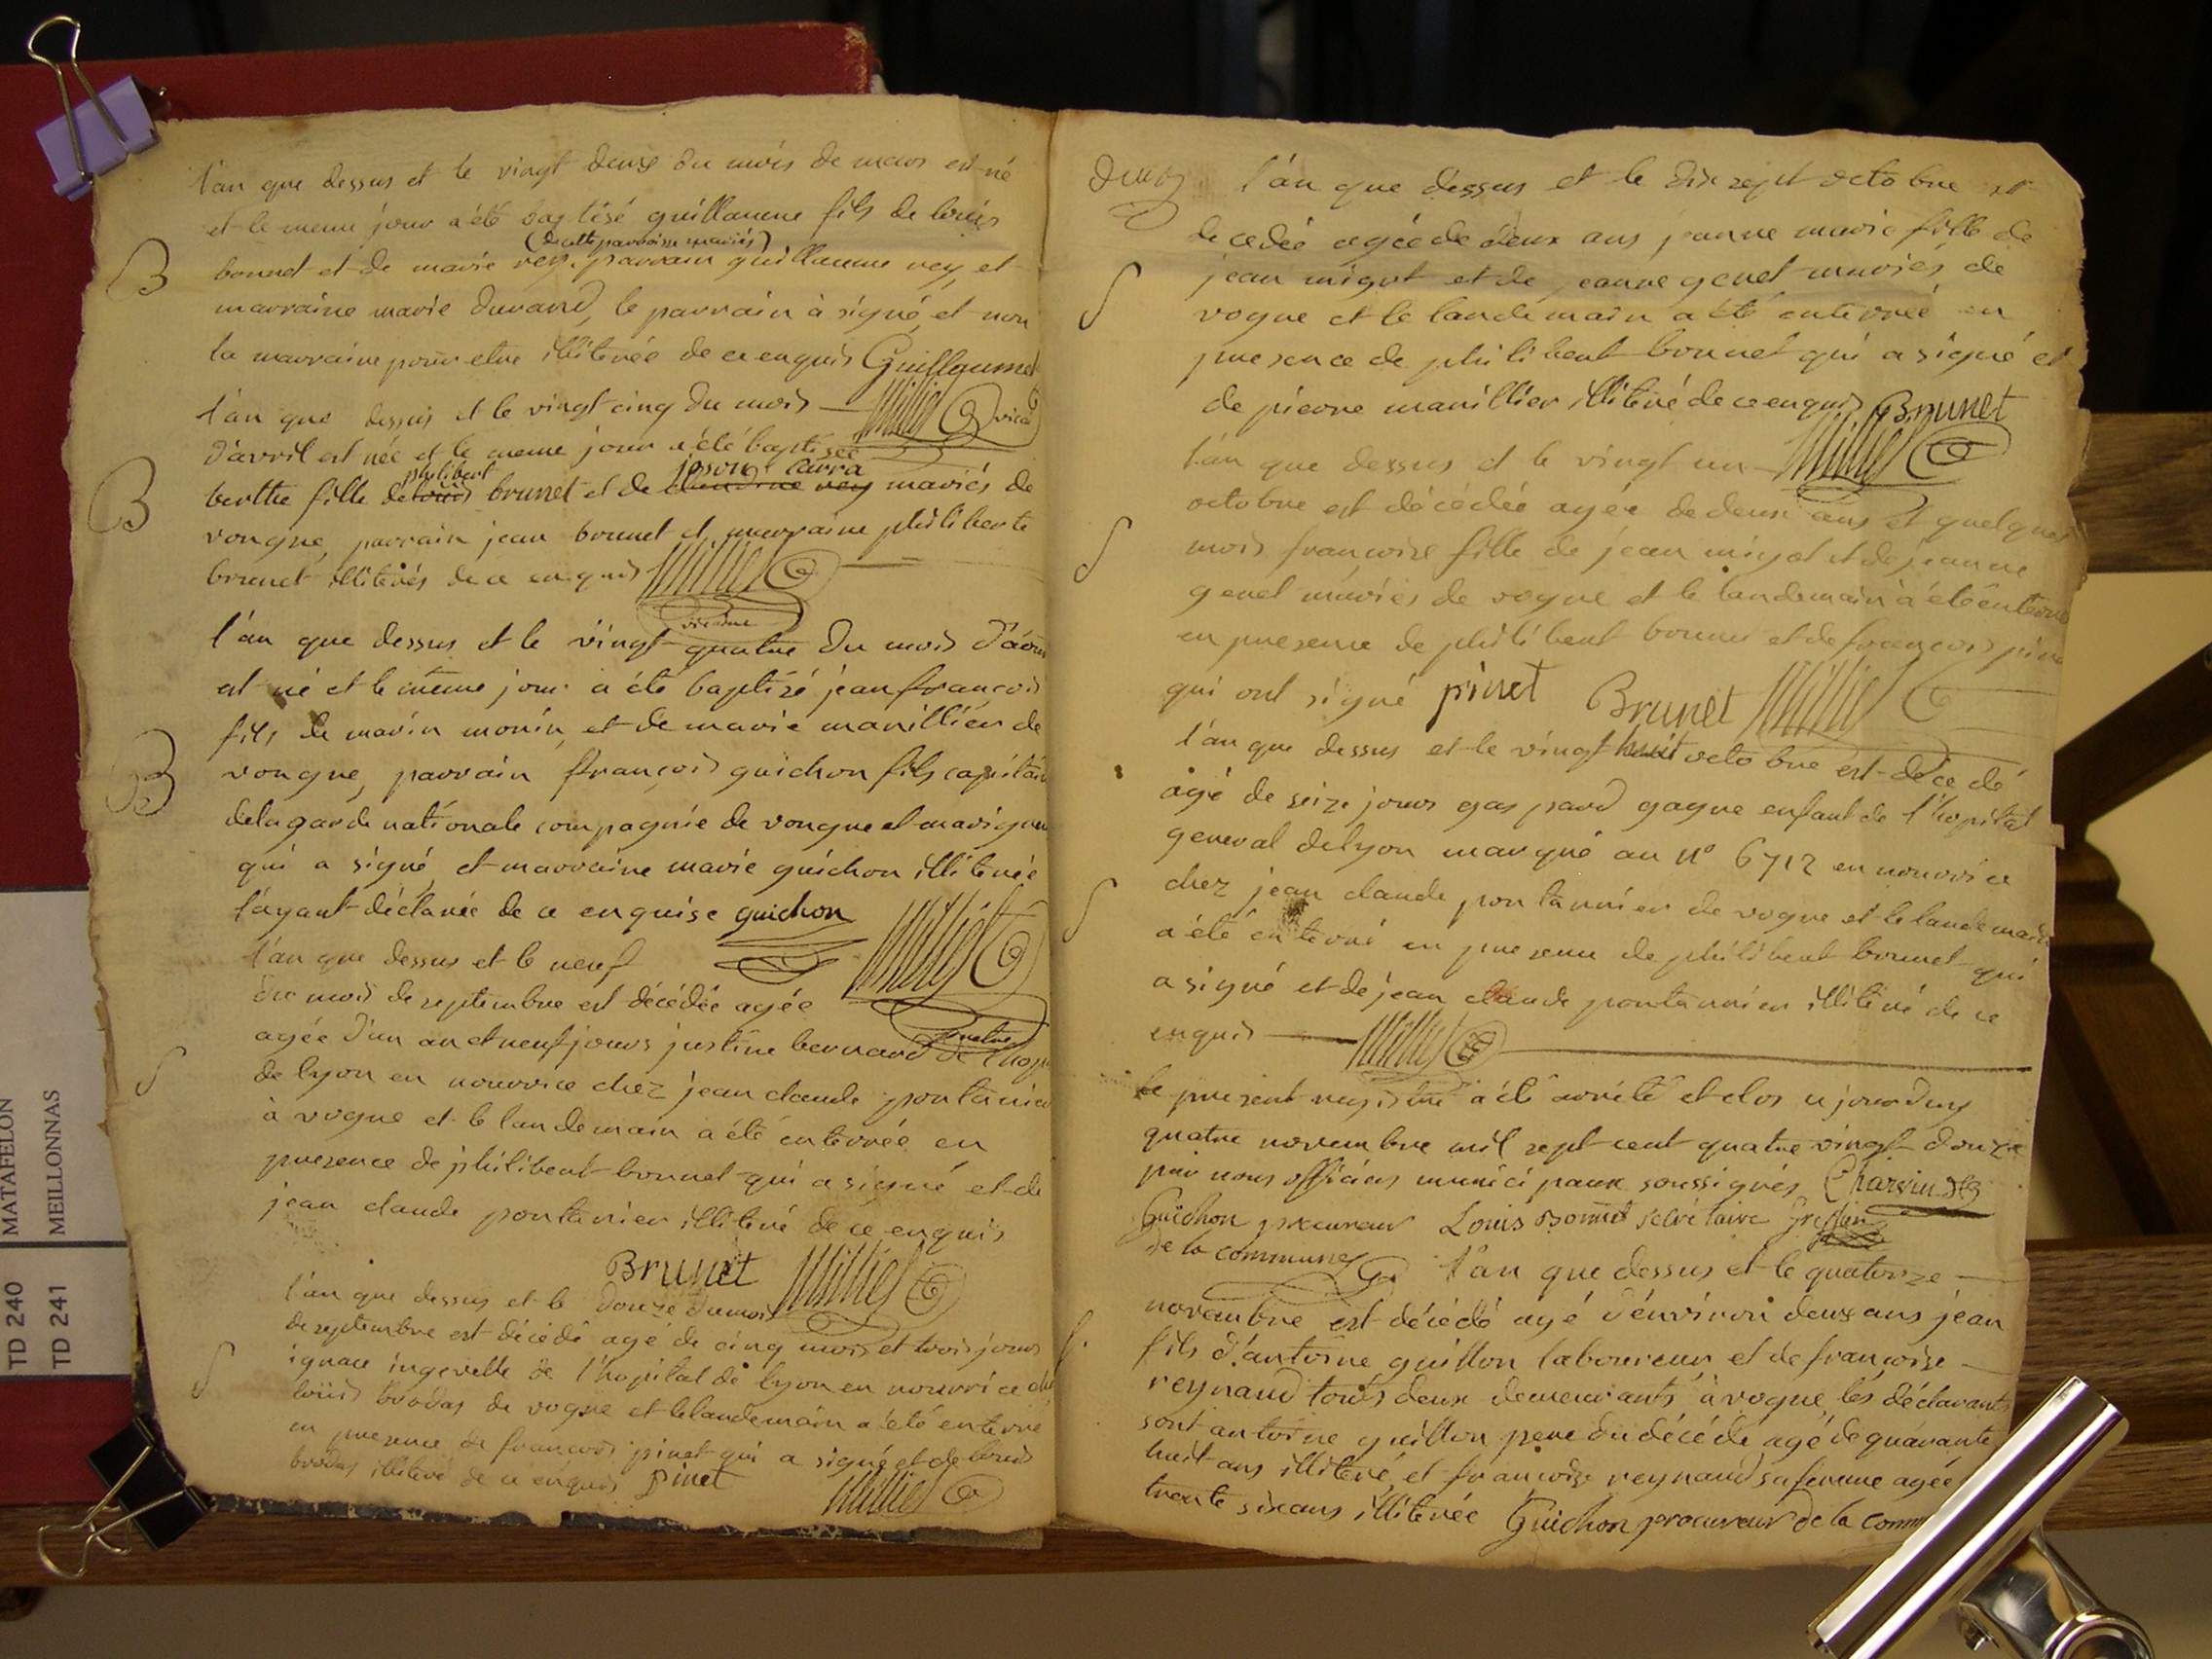 l'an que dessus et le vingt deux du mois de mars est né
et le meme jour a été baptisé guillaume fils de louis
(de cette parroisse mariés)
B
bonnet et de marie rey. parrain guillaume rey, et
marraine marie durand, le parrain à signé, et non
la marraine pour etre illiterée de ce enquis Guillaume
l'an que dessus et le vingt cinq du mois
Milliet vicaire
d'avril est née et le meme jour a été baptisée
philibert josone carra
B
berthe fille de louis brunet et de claudine rey mariés de
vongne, parrain jean brunet et marraine philiberte
brunet illiterés de ce enquis Milliet
vicaire
l'an que dessus et le vingt quatre du mois d'aoust
est né et le même jour a été baptizé jean françois
fils de marin monin, et de marie manillier de
B
vongne, parrain françois guichon fils capitaine
de la garde nationale compagnie de vongne et marignieu
qui a signé, et marraine marie guichon illiterée
l'ayant déclarée de ce enquise guichon Milliet
l'an que dessus et le neuf
du mois de septembre est décédée agée
agée d'un an et neuf jours justine bernard de l'hop
S
de lyon en nourrice chez jean claude pontanier
à vogne et le landemain a été enterrée en
presence de philibert bonnet qui a signé et de
jean claude pontanier illiteré de ce enquis
Brunet Milliet
l'an que dessus et le douze du mois
de septembre est décédé agé de cinq mois et trois jours
S
ignace ingevelle de l'hopital de lyon en nourrice chez
louis brodas de vogne et le landemain a été enterré
en presence de françois pinet qui a signé et de louis
brodas illiteré de ce enquis pinet Milliet
l'an que dessus et le dix sept octobre est
decedée agée de deux ans jeanne marie fille de
S
jean migot et de jeanne genet mariés de
vogne et le landemain a été enterrée en
presence de philibert bonnet qui a signé et
de pierre manillier illiteré de ce enquis Brunet
l'an que dessus et le vingt un Milliet
octobre est décédée agée de deux ans et quelques
S
mois françoise fille de jean migot et de jeanne
genet mariés de vogne et le landemain à été enterrée
en presence de philibert bonnet et de françois pinet
qui ont signé pinet Brunet Milliet
l'an que dessus et le vingt huit octobre est décedé
agé de seize jours gaspard gagne enfant de l'hopital
general de lyon marqué au n° 6712 en nourrice
S
chez jean claude pontannier de vogne et le landemain
a été enterré en presence de philibert bonnet qui
a signé et de jean claude pontannier illiteré de ce
enquis Milliet
le present registre a été arrêté et clos ce jourd'huy
quatre novembre mil sept cent quatre vingt douze
par nous officiers municipaux soussignés Charvin
Guichon procureur Louis Bonnet secretaire greffier
de la commune l'an que dessus et le quatorze
novembre est décédé agé d'environ deux ans jean
fils d'antoine guitton laboureur et de françoise
reynaud tous deux demeurants à vogne, les déclarants
sont antoine guitton pere du décédé agé de quarante
huit ans illiteré, et françoise reynaud sa femme agée
trente six ans illiterée Guichon procureur de la comm
TD 240 MATAFELON
TD 241 MEILLONNAS